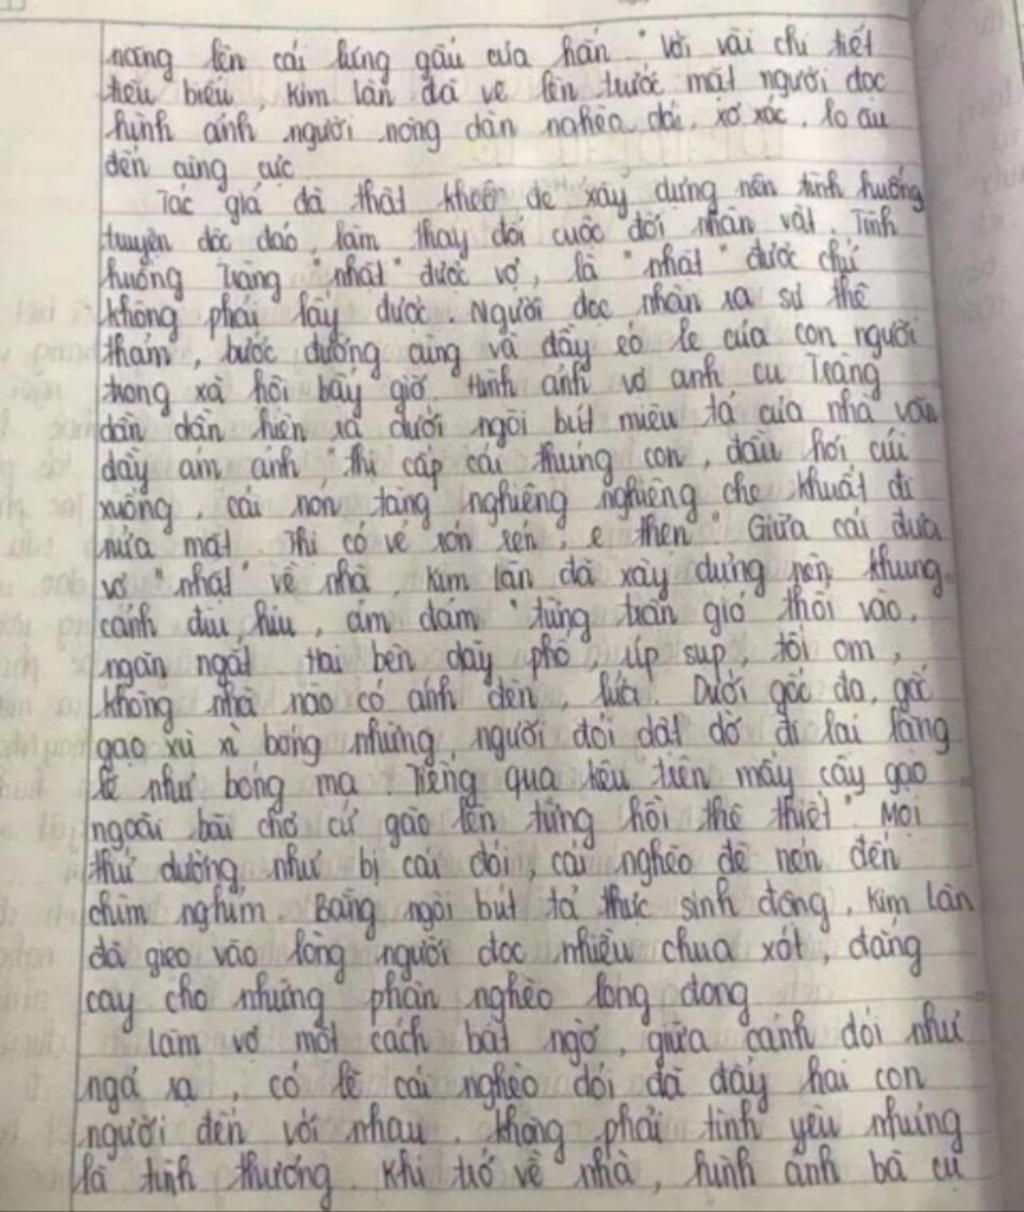 nặng lên cái lưng gấu của hắn". Với vài chi tiết
tiêu biểu, Kim Lân đã vẽ lên trước mắt người đọc
hình ảnh người nông dân nghèo đói, xơ xác, lo âu
đến cùng cực.
Tác giả đã thật khéo để xây dựng nên tình huống
truyện độc đáo, làm thay đổi cuộc đời nhân vật. Tình
huống Tràng "nhặt" được vợ, là "nhặt" được chứ
không phải lấy được. Người đọc nhận ra sự thê
thảm, bước đường cùng và đầy éo le của con người
trong xã hội bấy giờ. Hình ảnh vợ anh cu Tràng
dần dần hiện ra dưới ngòi bút miêu tả của nhà văn
đầy ám ảnh "thị cắp cái thúng con, đầu hơi cúi
xuống, cái nón tàng nghiêng nghiêng che khuất đi
nửa mặt. Thị có vẻ rón rén, e thẹn". Giữa cái đưa
vợ "nhặt" về nhà, Kim Lân đã xây dựng nên khung
cảnh đìu hiu, ảm đạm "từng trận gió thổi vào,
ngăn ngắt. Hai bên dãy phố, úp súp, tối om,
không nhà nào có ánh đèn, lửa. Dưới gốc đa, gốc
gạo xù xì bóng những người đói dật dờ đi lại lặng
lẽ như bóng ma. Tiếng quạ kêu trên mấy cây gạo
ngoài bãi chợ cứ gào lên từng hồi thê thiết". Mọi
thứ dường như bị cái đói, cái nghèo đè nén đến
chìm nghỉm. Bằng ngòi bút tả thực sinh động, Kim Lân
đã gieo vào lòng người đọc nhiều chua xót, đắng
cay cho những phận nghèo long đong.
Làm vợ một cách bất ngờ, giữa cảnh đói như
ngả rạ, có lẽ cái nghèo đói đã đẩy hai con
người đến với nhau. Không phải tình yêu nhưng
là tình thương. Khi trở về nhà, hình ảnh bà cụ